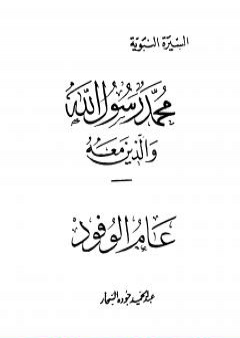 السيرة النبوية
محمد رسول الله
والذين معه
عام الوفود
عبد الحميد جوده السحار